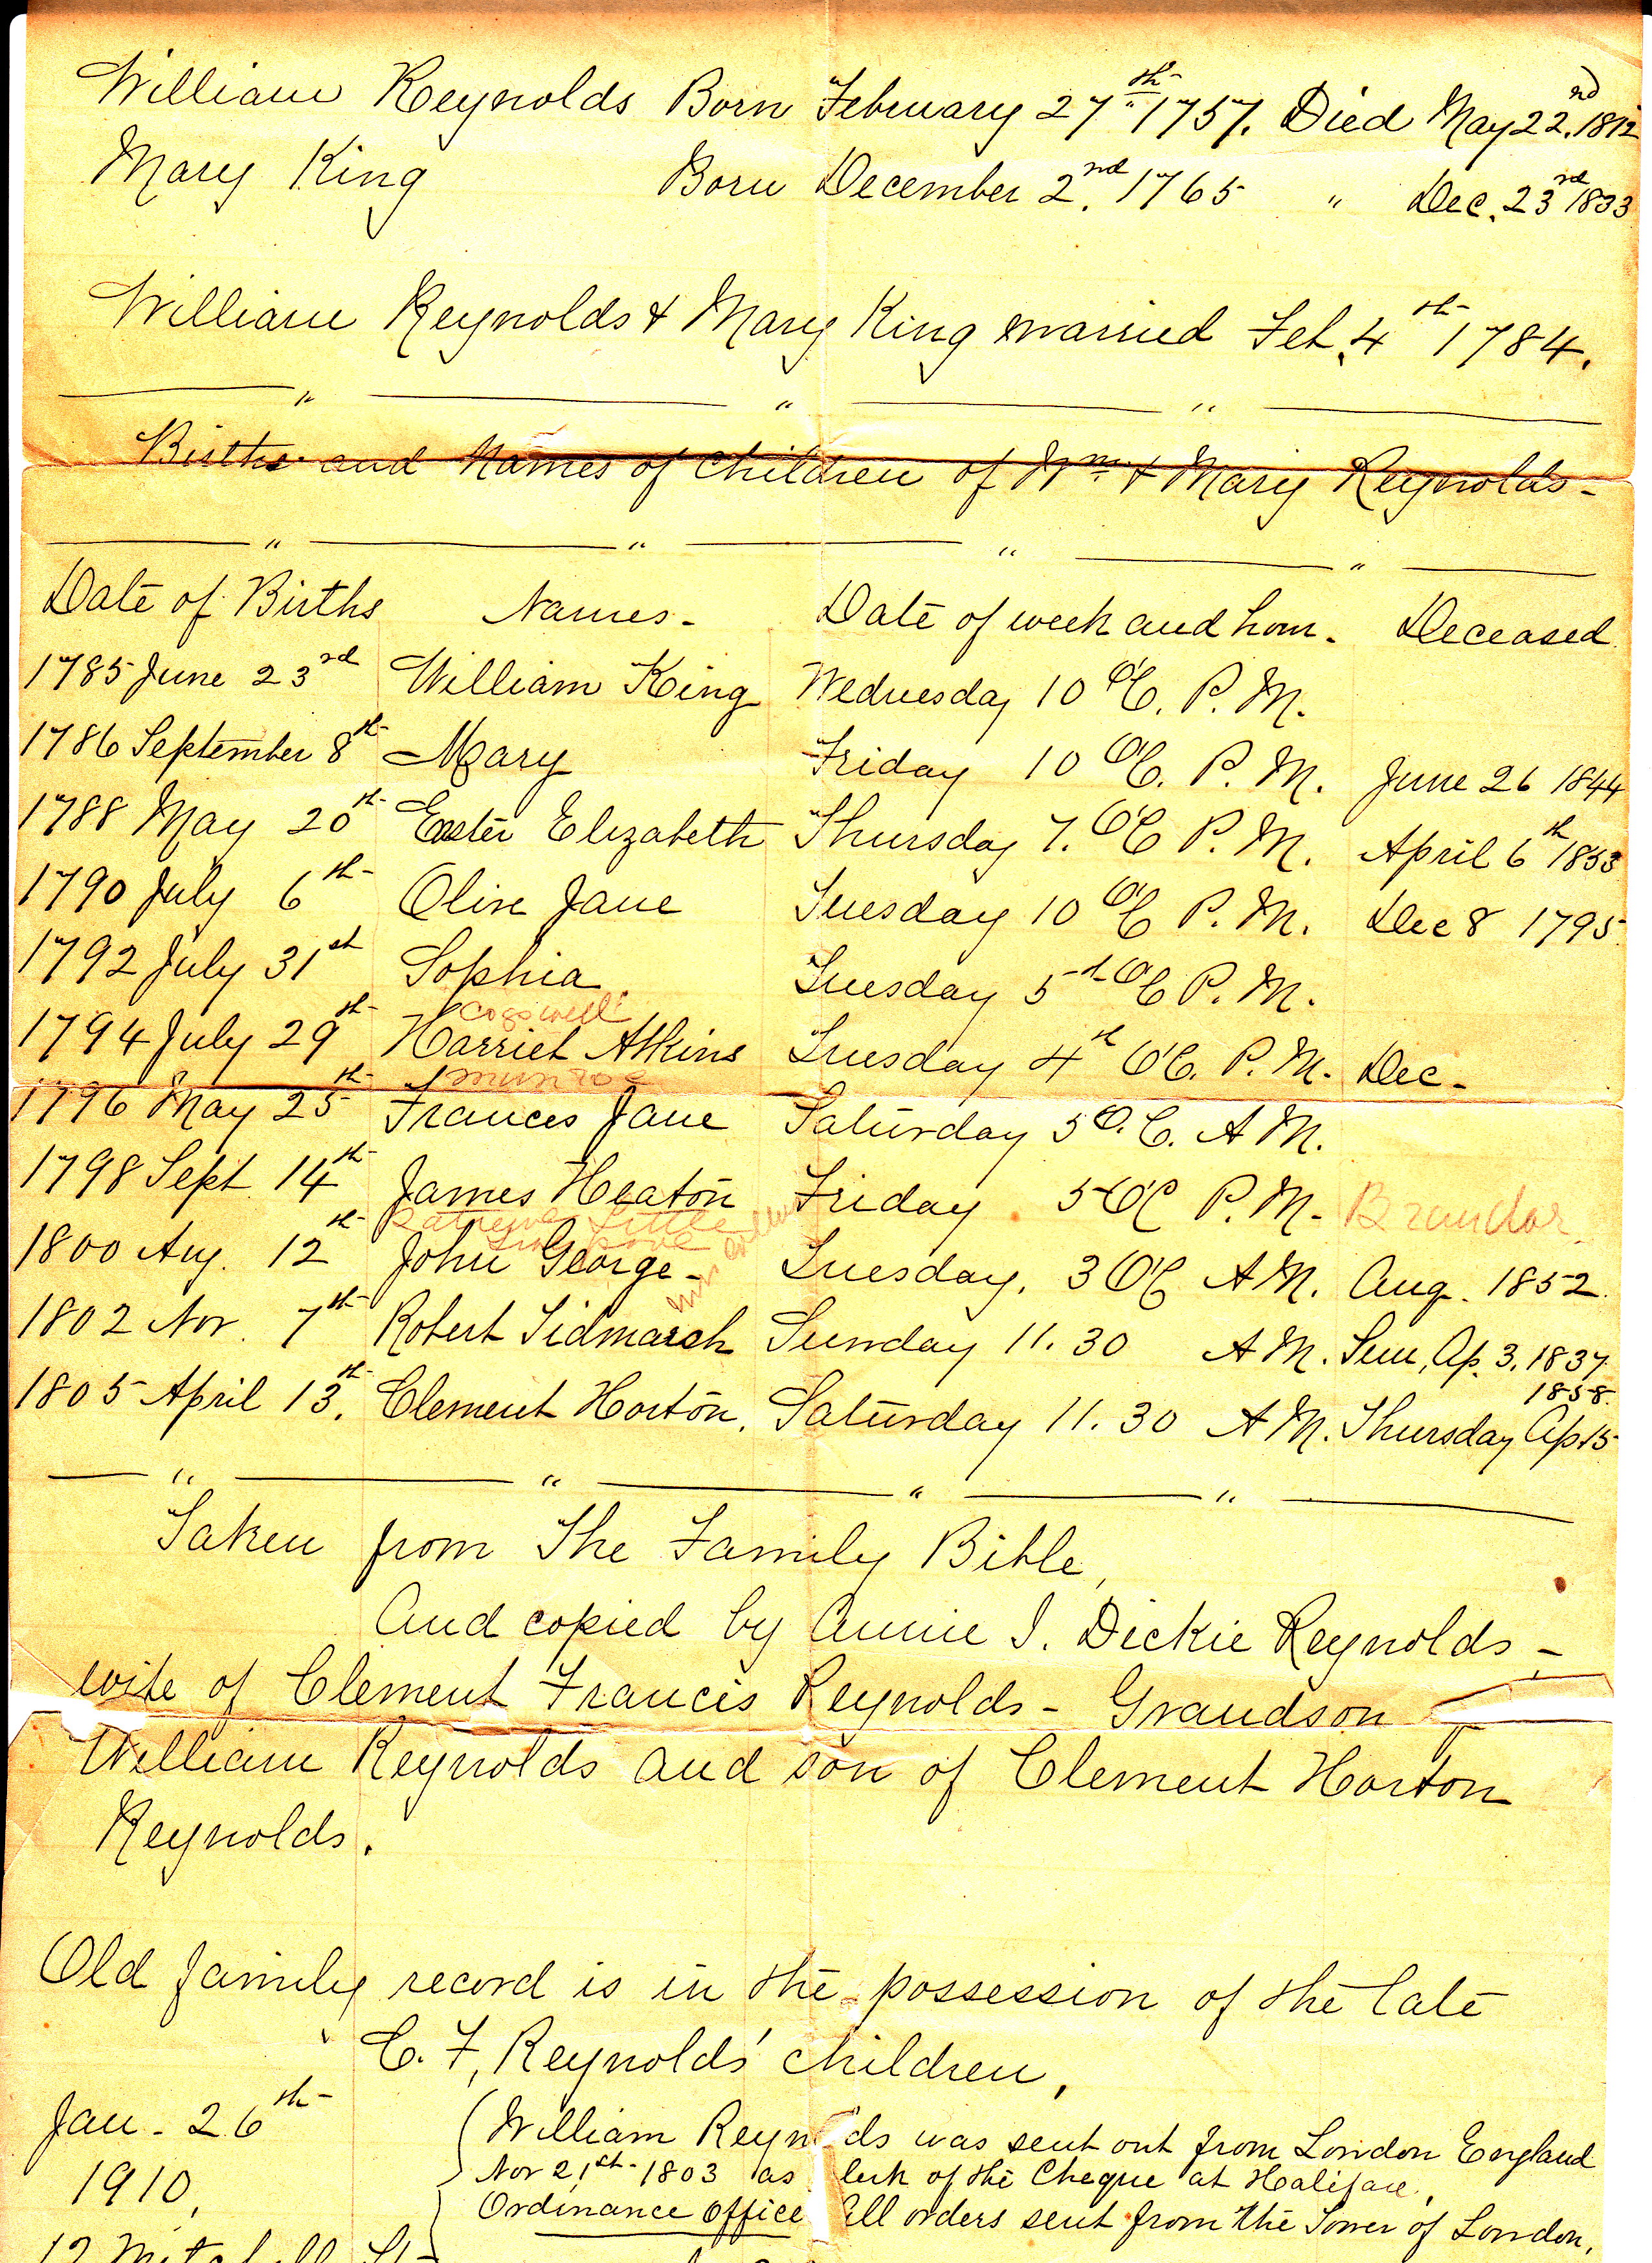 William Reynolds Born February 27th 1757. Died May 22nd. 1812
Mary King Born December 2nd. 1765 " Dec. 23rd 1833
William Reynolds & Mary King married Feb. 4th 1784.
Births and Names of Children of Wm & Mary Reynolds -
Date of Births Names - Date of week and hour - Deceased
1785 June 23rd William King Wednesday 10 O'C. P. M.
1786 September 8th Mary Friday 10 O'C. P. M. June 26 1844
1788 May 20th Ester Elizabeth Thursday 7. O'C P. M. April 6th 1853
1790 July 6th Olive Jane Tuesday 10 O'C P. M. Dec 8 1795
1792 July 31st Sophia Tuesday 5th O'C P. M.
Cogswell
1794 July 29th Harriet Atkins Tuesday 4th O'C. P. M. Dec -
munroe
1796 May 25th Frances Jane Saturday 5 O. C. A M.
1798 Sept. 14th James Heaton Friday 5 O'C P. M. -
Little
1800 Aug. 12th John George - Tuesday. 3 O'C A M. Aug. 1852.
1802 Nov. 7th Robert Tidmarsh Sunday 11. 30 A M. Sun, Ap. 3. 1837
1858.
1805 April 13th. Clement Horton. Saturday 11. 30 A M. Thursday Ap. 15
Taken from The Family Bible,
And copied by Annie I. Dickie Reynolds -
wife of Clement Francis Reynolds - Grandson
William Reynolds and son of Clement Horton
Reynolds.
Old family record is in the possession of the late
C. F. Reynolds' children.
Jan - 26th
1910,
(William Reyn ds was sent out from London England
Nov 21st - 1803 as lerk of the Cheque at Halifax.
Ordinance Office All orders sent from the Tower of London.